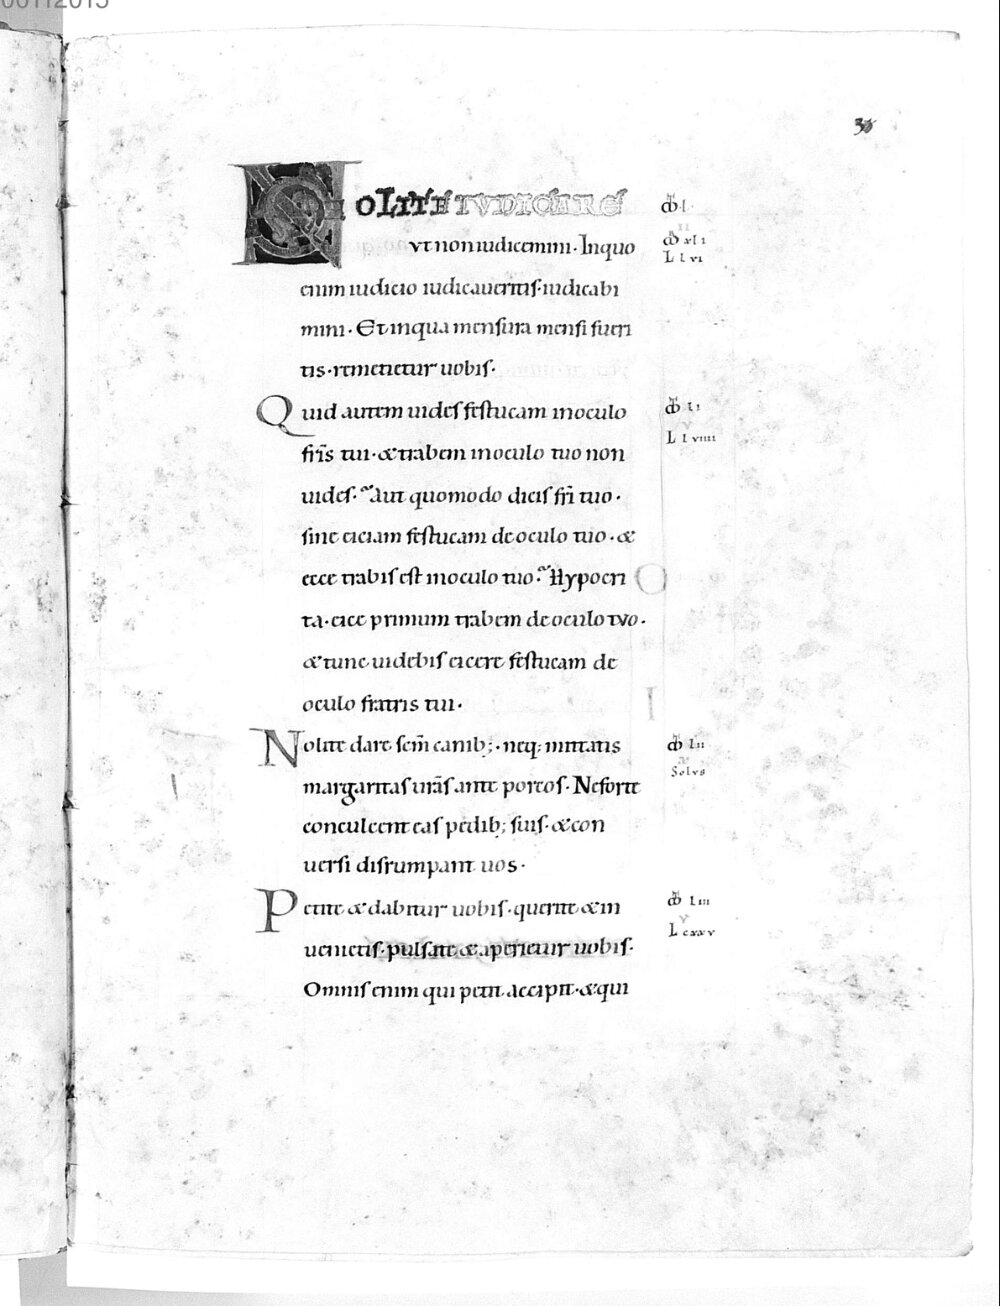 00112015
30
NOLITE IUDICARE
ut non iudicemini. In quo
enim iudicio iudicaveritis. iudicabi
mini. Et in qua mensura mensi fueri
tis. remetietur uobis.
Quid autem uides festucam in oculo
fr̄is tui. & trabem in oculo tuo non
uides. Aut quomodo dicis fr̄i tuo.
sine eiciam festucam de oculo tuo. &
ecce trabis est in oculo tuo. Hypocri
ta. eice primum trabem de oculo tuo.
& tunc uidebis eicere festucam de
oculo fratris tui.
Nolite dare scm̄ canib; . neq; mittatis
margaritas ur̄as ante porcos. Ne forte
conculcent eas pedib; suis. & con
uersi disrumpant uos.
Petite & dabitur uobis. querite & in
uenietis. pulsate & aperietur uobis.
Omnis enim qui petit accipit. & qui
L l vi
L l viiii
Solus
L cxxv